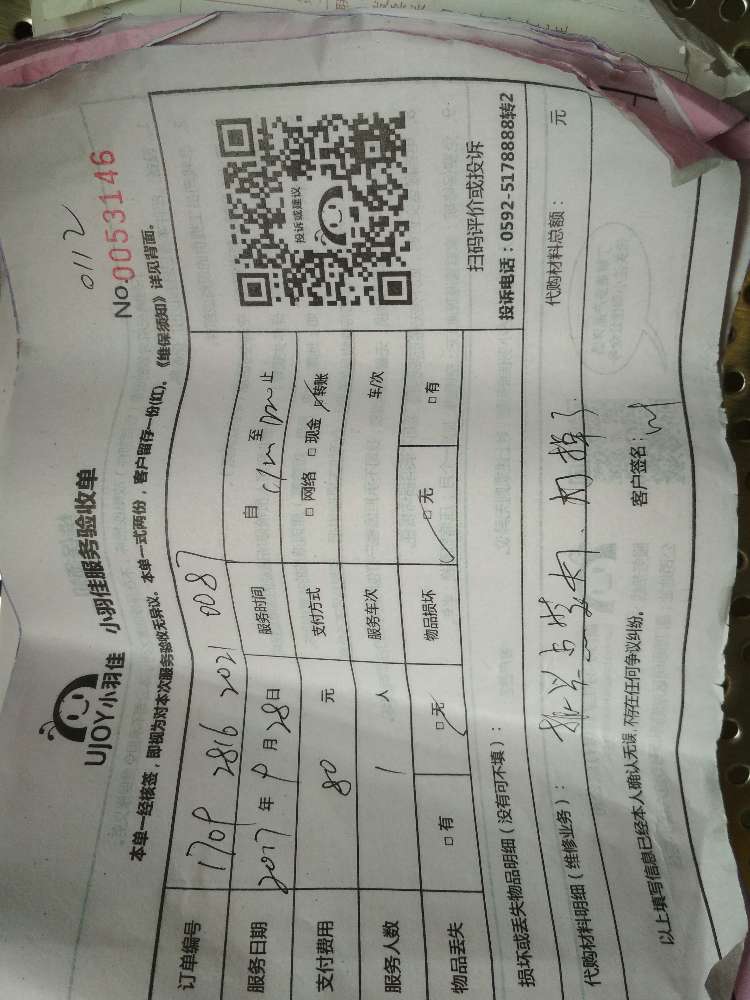 0112
UJOY小羽佳 小羽佳服务验收单
No.0053146
本单一经核签，即视为对本次服务验收无异议。本单一式两份，客户留存一份(红)。《维保须知》详见背面。
订单编号 1709 2816 2021 0087
服务日期 2017年9月28日 服务时间 自 至 止
支付费用 80 元 支付方式 □网络 □现金 □转账
服务人数 1 人 服务车次 车/次
物品丢失 □有 □无 物品损坏 □无 □有
投诉或建议
扫码评价或投诉
投诉电话：0592-5178888转2
损坏或丢失物品明细（没有可不填）：
代购材料明细（维修业务）： 代购材料总额： 元
以上填写信息已经本人确认无误，不存在任何争议纠纷。 客户签名：